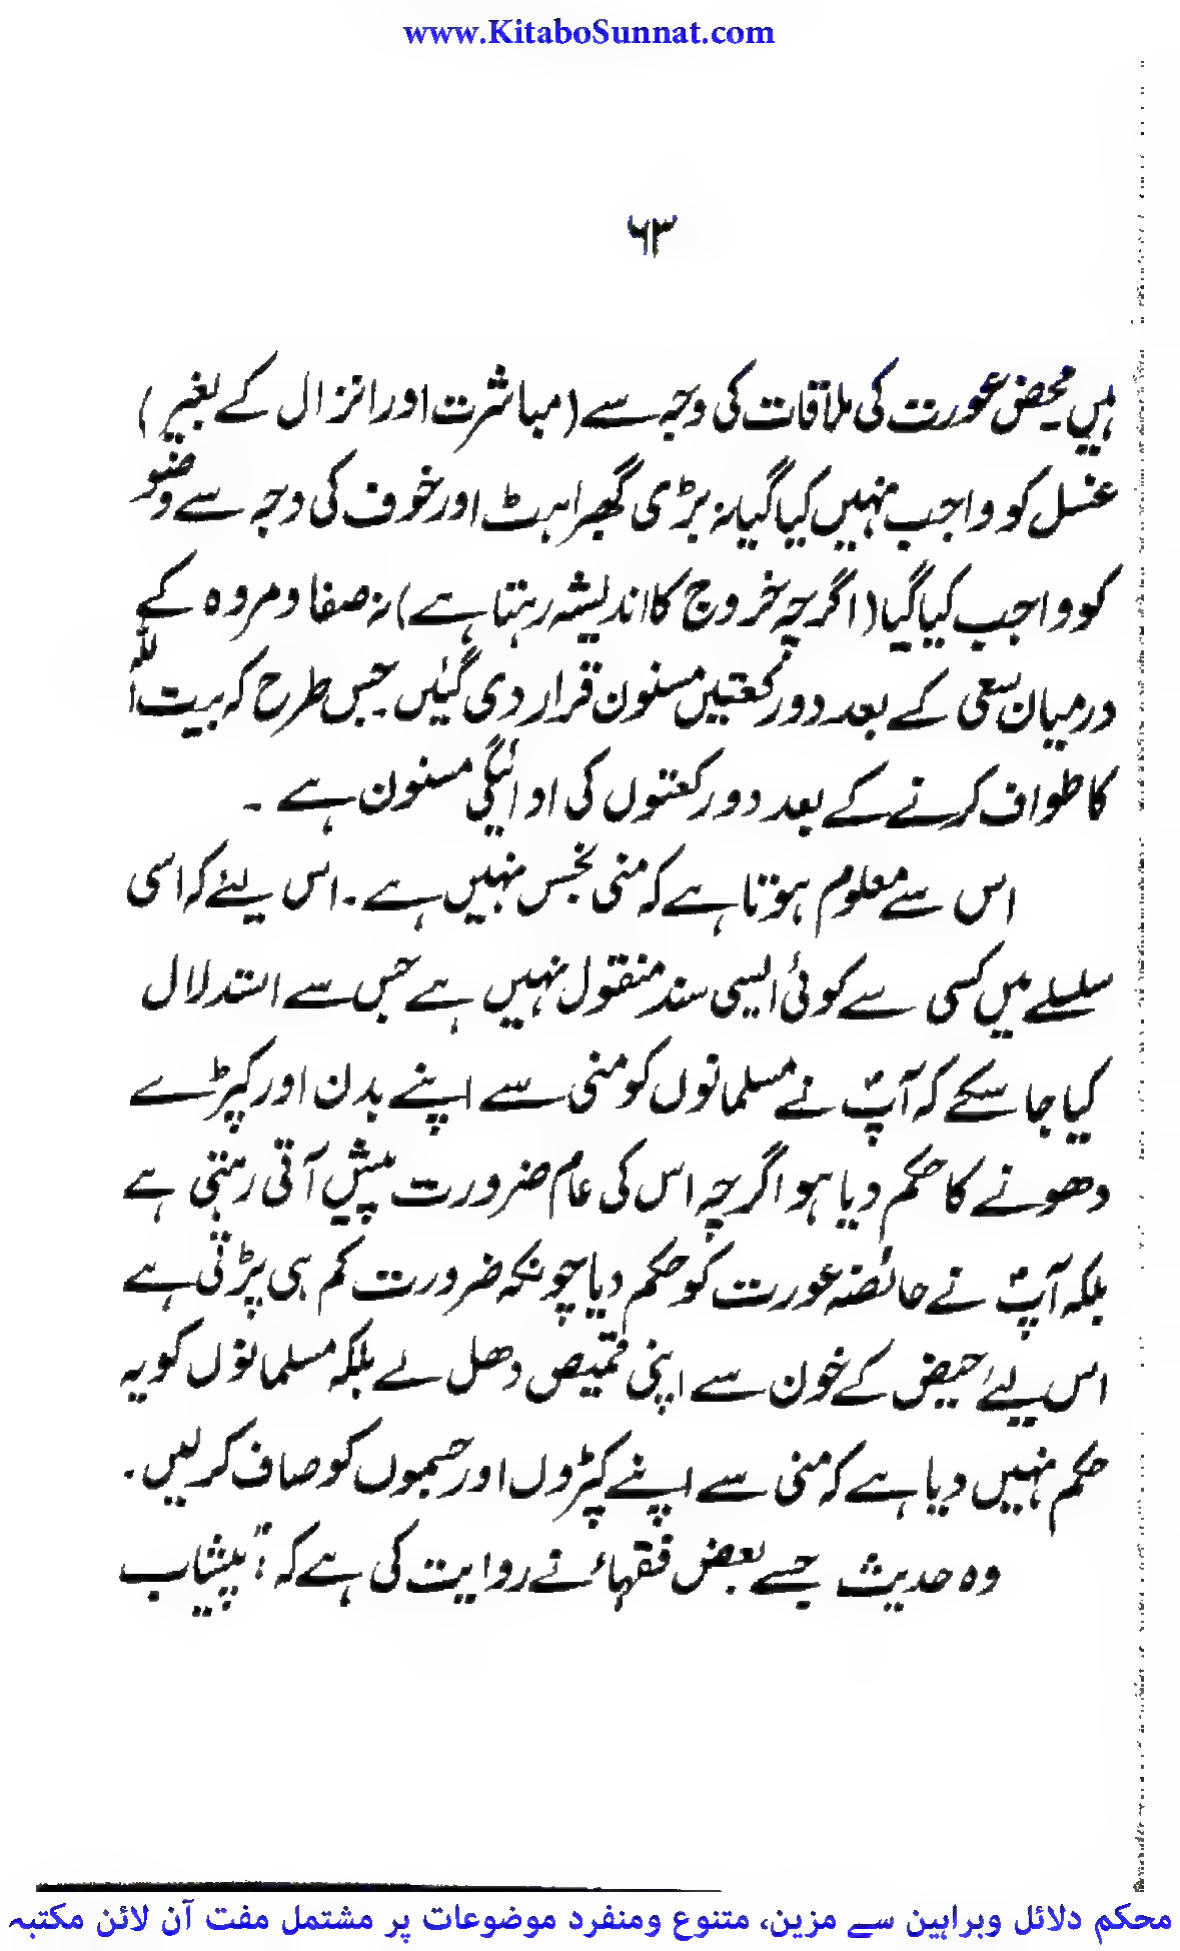 www.KitaboSunnat.com
۶۳
ہیں۔ محض عورت کی ملاقات کی وجہ سے (مباشرت اور انزال کے بغیر)
غسل کو واجب نہیں کیا گیا نہ بڑی گھبراہٹ اور خوف کی وجہ سے وضو
کو واجب کیا گیا (اگرچہ خروج کا اندیشہ رہتا ہے) نہ صفا و مروہ کے
درمیان سعی کے بعد دو رکعتیں مسنون قرار دی گئیں جس طرح کہ بیت اللہ
کا طواف کرنے کے بعد دو رکعتوں کی ادائیگی مسنون ہے ۔
اس سے معلوم ہوتا ہے کہ منی نجس نہیں ہے ۔ اس لیئے کہ اسی
سلسلے میں کسی سے کوئی ایسی سند منقول نہیں ہے جس سے استدلال
کیا جا سکے کہ آپؐ نے مسلمانوں کو منی سے اپنے بدن اور کپڑے
دھونے کا حکم دیا ہو اگرچہ اس کی عام ضرورت پیش آتی رہتی ہے
بلکہ آپؐ نے حائضہ عورت کو حکم دیا چونکہ ضرورت کم ہی پڑتی ہے
اس لیئے حیض کے خون سے اپنی قمیص دھل لے بلکہ مسلمانوں کو یہ
حکم نہیں دیا ہے کہ منی سے اپنے کپڑوں اور جسموں کو صاف کر لیں ۔
وہ حدیث جسے بعض فقہاء نے روایت کی ہے کہ : "پیشاب
محکم دلائل وبراہین سے مزین، متنوع ومنفرد موضوعات پر مشتمل مفت آن لائن مکتبہ